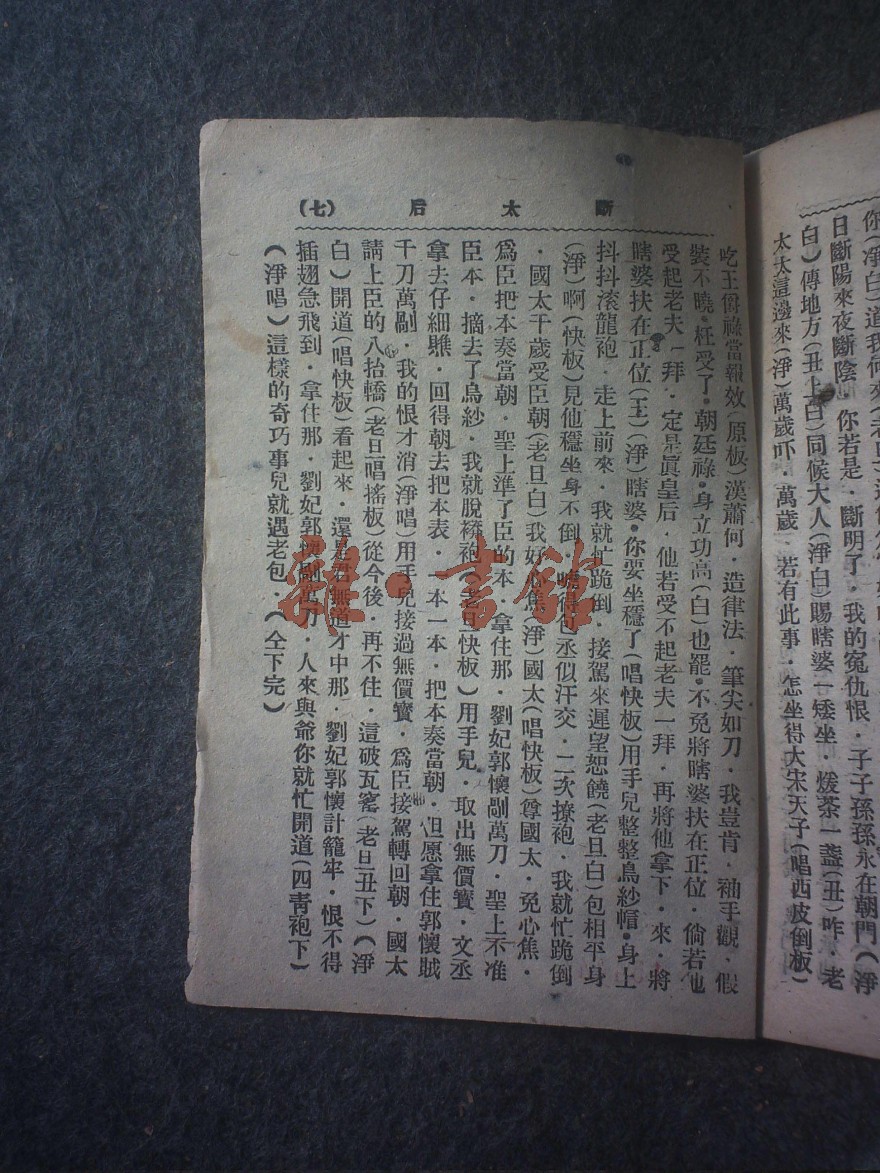 你(淨白)道我何來(老旦)
日斷陽來夜斷陰．你若是．斷明了．我的冤仇恨．子子孫孫永在朝門(淨
白)傳地方(丑上白)同候大人(淨白)賜瞎婆一矮坐．煖茶一盞(丑)咋．老
太太這邊來(淨)萬歲吓．萬歲．若有此事．怎坐得大宋天子(唱西皮倒板)
斷太后　(七)
吃王爵祿當報效(原板)漢蕭何．造律法．筆尖如刀．我豈肯．袖手觀．假
裝不曉．枉受了．朝廷祿．身立功高(白)也罷．不免將瞎婆扶在正位．倘若他
受起老夫一拜．定是眞皇后．他若受不起老夫一拜．再將他拿下．來．將
瞎婆扶在正位(王)(淨)瞎婆．你要坐穩了(唱快板)用手兒整整烏紗帽．身上
抖抖滚龍袍．走上前來．我就忙跪倒．接駕來遲望恕饒(老旦白)包相平身
(淨)啊(快板)見他穩坐身不倒．嚇得包丞似汗交．二次撩袍．我就忙跪倒
．國太千歲受臣朝(老旦白)我好心焦(淨)國太(唱快板)尊國太．免心焦．
爲臣把本奏當朝．聖上準了臣的本．拿住那．劉妃郭懷剮萬刀．聖上不准
臣本．摘去了烏紗．我就脫蟒袍(老旦快板)用手兒．取出無價寶．文丞
拿去仔細瞧．回得朝去把本表．一本一本．把本奏當朝．但愿拿住郭懷賊
千刀萬剮．我的恨才消(淨唱)用手兒接過無價寶．爲臣接駕轉回朝．國太
請上臣的八抬轎(老旦唱搖板)從今後．再不住．這破瓦窰(老旦丑下)(淨
白)開道(唱快板)看起來．還是君無道才中那．劉妃郭懷計籠牢．恨不得
插翅急飛到．拿住那．劉妃郭懷剮萬刀．人來與爺你就忙開道(四青袍下)
(淨唱)這樣的奇巧事兒就遇老包．(仝下完)
雜·書館